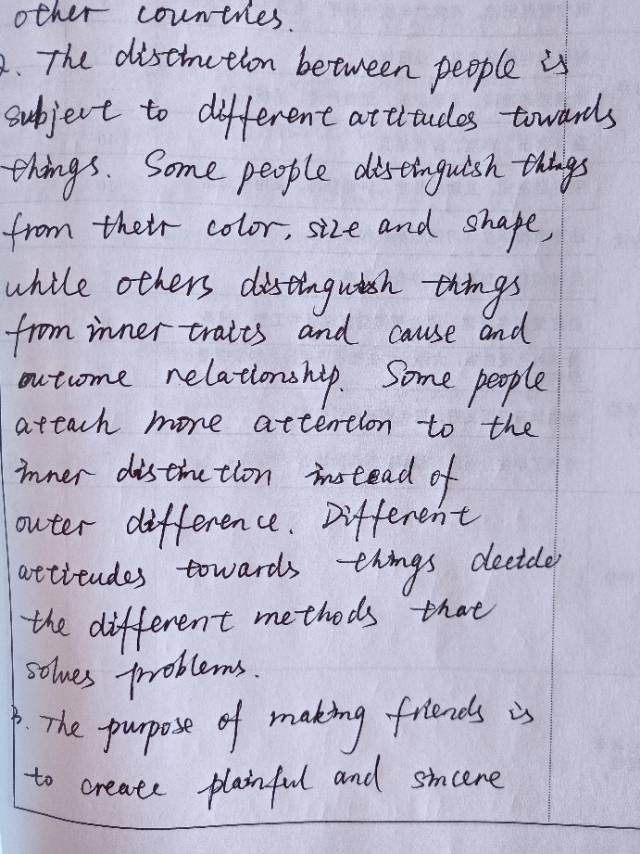 other countries.
2. The distinction between people is
subject to different attitudes towards
things. Some people distinguish things
from their color, size and shape,
while others distinguish things
from inner traits and cause and
outcome relationship. Some people
attach more attention to the
inner distinction instead of
outer difference. Different
attitudes towards things decide
the different methods that
solves problems.
3. The purpose of making friends is
to create plainful and sincere